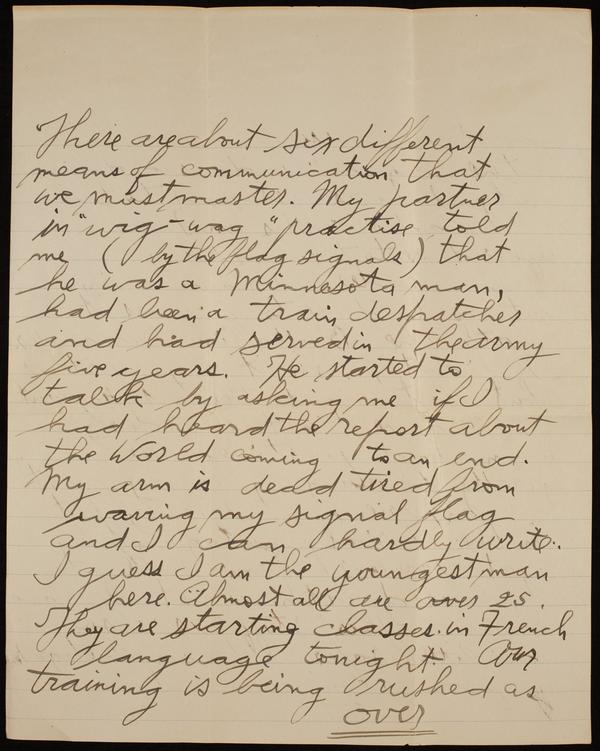 There are about six different
means of communication that
we must master. My partner
in "wig-wag" practise told
me (by the flag signals) that
he was a Minnesota man,
had been a train despatcher
and had served in the army
five years. He started to
talk by asking me if I
had heard the report about
the World coming to an end.
My arm is dead tired from
waving my signal flag
and I can hardly write.
I guess I am the youngest man
here. Almost all are over 25.
They are starting classes in French
language tonight. Our
training is being rushed as
over